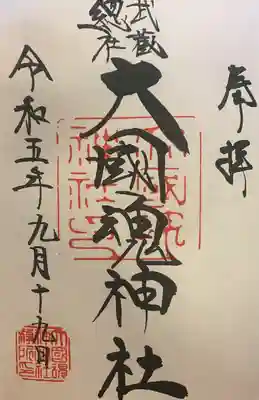 奉拝
武蔵
總社
大國魂神社
令和五年九月十九日